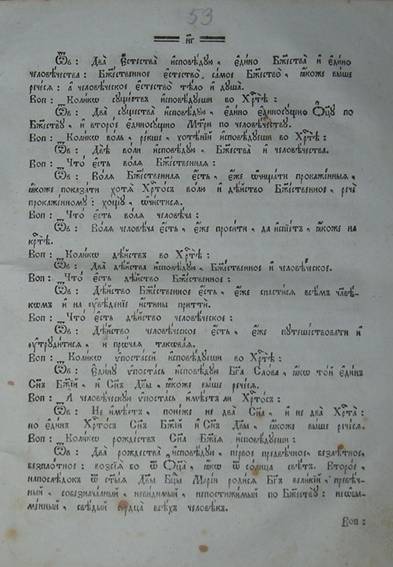 53
н҃г
Ѿв: Два Естества исповѣдую, едино Бж҃ества и едино
человѣчества: Бж҃ественное естество, самое Бжество, ꙗкоже выше
речеся: а человѣческое естество тѣло и душа.
Воп: Колики существъ исповѣдуеши во Хр҃тѣ:
Ѿв: Два существа исповѣдую, едино единосущно Оц҃у по
Бж҃еству, и второе единосущно Мт҃ри по человѣчеству.
Воп: Колики воля, рекше, хотѣний исповѣдуеши во Хр҃тѣ:
Ѿв: Двѣ воли исповѣдую, Бж҃ества и человѣчества.
Воп: Что есть воля Бж҃ественная:
Ѿв: Воля Бж҃ественная есть, еже очищати прокаженныя,
ꙗкоже показати хотя Хр҃тосъ волю и дѣйство Бж҃ественное, рече
прокаженному: хощу, очистися.
Воп: Что есть воля человѣча:
Ѿв: Воля человѣча есть, еже просити, да испїетъ, ꙗкоже на
кр҃тѣ.
Воп: Колики дѣйствъ во Хр҃тѣ:
Ѿв: Два дѣйства исповѣдую, Бж҃ественное и человѣческое.
Воп: Что есть дѣйство Бж҃ественное:
Ѿв: Дѣйство Бж҃ественное есть, еже спастися всѣмъ члв҃ѣ-
комъ и на увѣденїе истины притти.
Воп: Что есть дѣйство человѣческое:
Ѿв: Дѣйство человѣческое есть, еже путешествовати и
утрудитися, и прочая таковая.
Воп: Колики ѵпостасей исповѣдуеши во Хр҃тѣ:
Ѿв: Едину ѵпостась исповѣдую Бг҃а Слова, ꙗко той единъ
Сн҃ъ Бж҃їй, и Сн҃ъ Дв҃ы, ꙗкоже выше речеся.
Воп: А человѣческую ѵпостась имѣетъ ли Хр҃тосъ:
Ѿв: Не имѣетъ, понеже не два Сн҃а и не два Хр҃та:
но единъ Хр҃тосъ Сн҃ъ Бж҃їй и Сн҃ъ Дв҃ы, ꙗкоже выше речеся.
Воп: Колики рождествъ Сн҃а Бж҃їя исповѣдуеши:
Ѿв: Два рождества, исповѣдую, первое предвѣчное, безлѣтное,
безплотное: возсїя во Оц҃а, ꙗко ѿ солнца свѣтъ. Второе,
напослѣдокъ ѿ ст҃ыя Дв҃ы Бц҃ы Мр҃їи родися Бг҃ъ великїй, превѣч-
ный, собезначалный, невидимый, непостижимый по Бж҃еству: неизмѣ-
мѣнный, свѣдый сердца всѣхъ человѣкъ.
Воп: